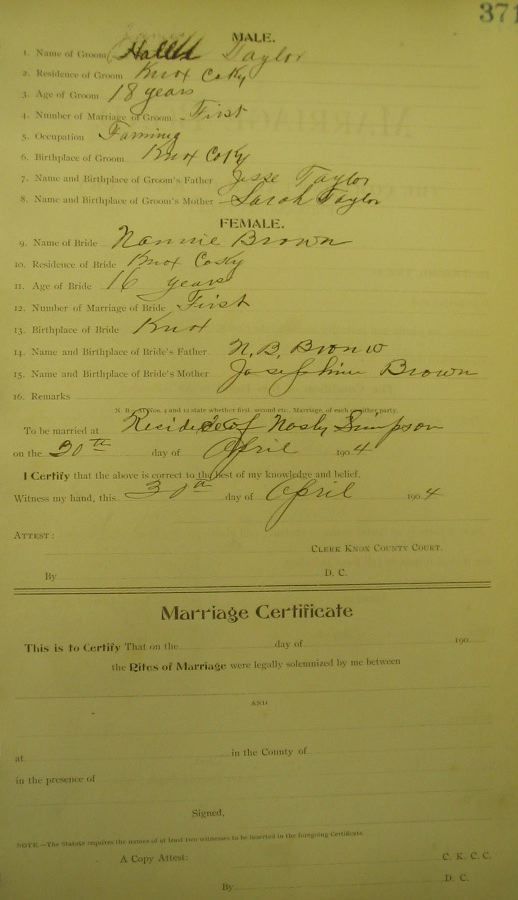 371
MALE.
1. Name of Groom Taylor
2. Residence of Groom Knox Co Ky
3. Age of Groom 18 years
4. Number of Marriage of Groom First
5. Occupation Farming
6. Birthplace of Groom Knox Co Ky
7. Name and Birthplace of Groom's Father Jesse Taylor
8. Name and Birthplace of Groom's Mother Sarah Taylor
FEMALE.
9. Name of Bride Nannie Brown
10. Residence of Bride Knox Co Ky
11. Age of Bride 16 years
12. Number of Marriage of Bride First
13. Birthplace of Bride Knox
14. Name and Birthplace of Bride's Father N. B. Bronw
15. Name and Birthplace of Bride's Mother Josephine Brown
16. Remarks
N. B.—At Nos. 4 and 12 state whether first, second etc., Marriage, of each of either party.
To be married at of Simpson
on the 30th day of April 1904
I Certify that the above is correct to the best of my knowledge and belief.
Witness my hand, this 30th day of April 1904
ATTEST:
CLERK KNOX COUNTY COURT.
By D. C.
Marriage Certificate
This is to Certify That on the day of 190
the Rites of Marriage were legally solemnized by me between
AND
at in the County of
in the presence of
Signed,
NOTE.—The Statute requires the names of at least two witnesses to be inserted in the foregoing Certificate.
A Copy Attest: C. K. C. C.
By D. C.